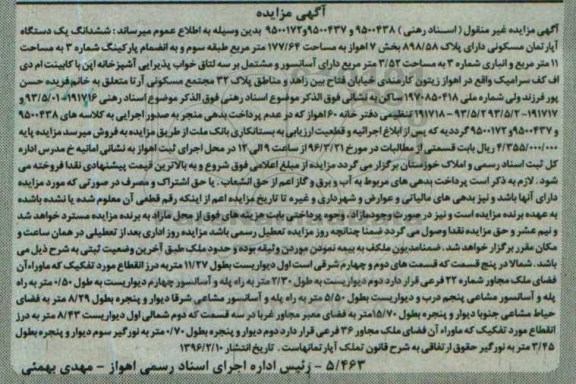 آگهی مزایده
آگهی مزایده غیر منقول (اسناد رهنی) ۹۵۰۰۴۳۸ و ۹۵۰۰۴۳۷ و ۹۵۰۰۱۷۲ بدین وسیله به اطلاع عموم میرساند : ششدانگ یک دستگاه
آپارتمان مسکونی دارای پلاک ۸۹۸/۵۸ بخش ۷ اهواز به مساحت ۱۷۷/۶۴ متر مربع طبقه سوم و به انضمام پارکینگ شماره ۳ به مساحت
۱۱ متر مربع و انباری شماره ۳ به مساحت ۳/۵۲ متر مربع دارای آسانسور و مشتمل بر سه تاق خواب پذیرایی آشپزخانه اپن با کابینت ام دی
اف کف سرامیک واقع در اهواز زیتون کارمندی خیابان فتاح بین زاهد و مناطق پلاک ۳۲ مجتمع مسکونی آرتا متعلق به خانم فریده حسن
پور فرزند ولی شماره ملی ۱۹۷۰۸۵۰۴۱۸ ساکن به نشانی فوق الذکر موضوع اسناد رهنی فوق الذکر موضوع اسناد رهنی ۹۱۷۷۱۶-۹۳/۵/۰۱ و
۹۱۷۷۱۷-۹۳/۵/۲ و ۹۱۷۷۱۸-۹۳/۵/۲ تنظیمی دفترخانه ۶۰ اهواز که در عدم پرداخت بدهی منجر به صدور اجرایی به کلاسه های ۹۵۰۰۴۳۸
و ۹۵۰۰۴۳۷ و ۹۵۰۰۱۷۲ گرددیه که پس از ابلاغ اجرائیه و قطعیت ارزیابی به بستانکاری بانک ملت از طریق مزایده به فروش میرسد مزایده پایه
۴/۳۵۵/۰۰۰/۰۰۰ ریال بابت قسمتی از مطالبات در مورخ ۹۶/۳/۲۱ از ساعت ۹ الی ۱۲ در محل اجرای ثبت اهواز به نشانی امانیه خ مدرس اداره
کل ثبت اسناد رسمی و املاک خوزستان برگزار می گردد مزایده از مبلغ اعلامی فوق شروع و به بالاترین قیمت پیشنهادی نقدا فروخته می
شود . لازم به ذکر است پرداخت بدهی های مربوط به آب و برق و گاز اعم از حق انشعاب . یا حق اشتراک و مصرف در صورتی که مورد مزایده
دارای آنها باشد و نیز بدهی های مالیاتی و عوارض و شهرداری و غیره تا تاریخ مزایده اعم از اینکه رقم قطعی آن معلوم شده یا نشده باشده
به عهده برنده مزایده است و نیز در صورت وجود مازاد. وجوه پرداختی بابت هزینه های فوق از محل مازاد به برنده مزایده مسترد خواهد شد
و نیم عشر و حق مزایده نقدا وصول می گردد ضمنا چنانچه روز مزایده تعطیل رسمی باشد مزایده روز اداری بعد از تعطیلی در همان ساعت و
مکان مقرر برگزار خواهد شد. ضمنا مدیون ملکف به بیمه نمودن موردن وثیقه بوده و حدود ملک طبق آخرین وضعیت ثبتی به شرح ذیل می
باشد. شمالا در پنج قسمت که قسمت های دوم و چهارم شرقی است اول دیواریست بطول ۱۱/۲۷ متر به درز انقطاع مورد تفکیک که ماوراء آن
فضای ملک مجاور شماره ۲۲ فرعی قرار دارد دوم دیواریست به طول ۲/۳۰ متر به راه پله و آسانسور چهارم دیواریست به طول ۰/۵۰ متر به راه
پله و آسانسور مشاعی پنجم درب و دیواریست بطول ۵/۵۰ متر به راه پله و آسانسور مشاعی شرقا دیوار و پنجره بطول ۸/۲۹ متر به فضای
حیاط مشاعی جنوبا دیوار و پنجره بطول ۱۵/۷۰ متر به فضای معبر مجاور غربا در سه قسمت که دوم شمالی اول دیواریست ۸/۴۳ متر به درز
انقطاع مورد تفکیک که ماوراء آن فضای ملک مجاور ۳۶ فرعی قرار دارد دوم دیوار و پنجره بطول ۰/۷۰ متر به نورگیر سوم دیوار و پنجره بطول
۳/۴۵ متر به نورگیر حقوق ارتفاقی به شرح قانون تملک آپارتمانهاست . تاریخ انتشار ۱۳۹۶/۲/۱۰
۵/۴۶۳ - رئیس اداره اجرای اسناد رسمی اهواز - مهدی بهمئی